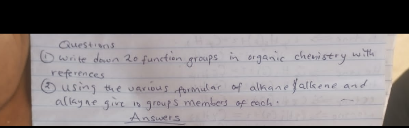 Questions
① write down 20 function groups in organic chemistry with
references
② using the various formular of alkane/alkene and
alkyne give 10 groups members of each.
Answers